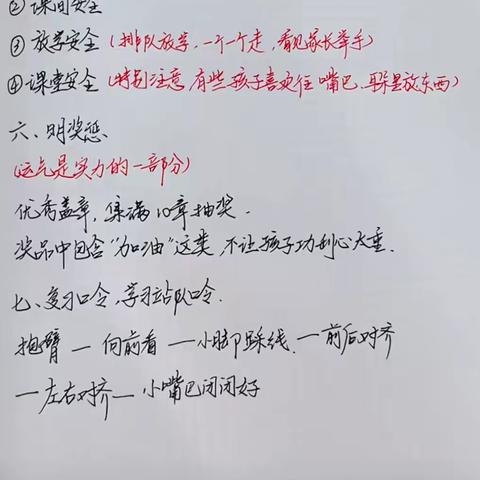 ②课间安全
③放学安全(排队放学,一个一个走,看见家长举手)
④课堂安全(特别注意,有些孩子喜欢往嘴巴、耳朵里放东西)
六、明奖惩、
(运气是实力的一部分)
优秀盖章,集满10章抽奖.
奖品中包含“加油”这类,不让孩子功利心太重.
七、复习口令,学习站队口令.
抱臂—向前看—小脚踩线、—前后对齐
—左右对齐—小嘴巴闭闭好